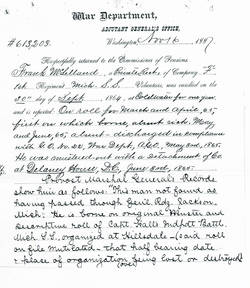 War Department,
ADJUTANT GENERAL'S OFFICE,
Washington, Nov 16, 1887
#613,203.
Respectfully returned to the Commissioner of Pensions.
Frank McLelland, a Private Rect, of Company F,
1st Regiment Mich. S.S. Volunteers, was enrolled on the
30th day of Sept, 1864, at for one year,
and is reported On roll for March and April, 65,
first on which borne, absent sick, May
and June, 65, absent - discharged in compliance
with G.O. No. 77, War Dept, A.G.O., May 3rd, 1865.
He was mustered out with a detachment of Co
at Delaney House, D.C., June 3rd, 1865.
Provost Marshal General's Records
show him as follows: "This man not found as
having passed through Genl. Rdz. Jackson,
Mich: He is borne on original Muster and
descriptive roll of Capt. Indpt Battl.
Mich S.S., organized at Hillsdale - (said roll
on file mutilated - that half bearing date
& place of organization being lost or destroyed